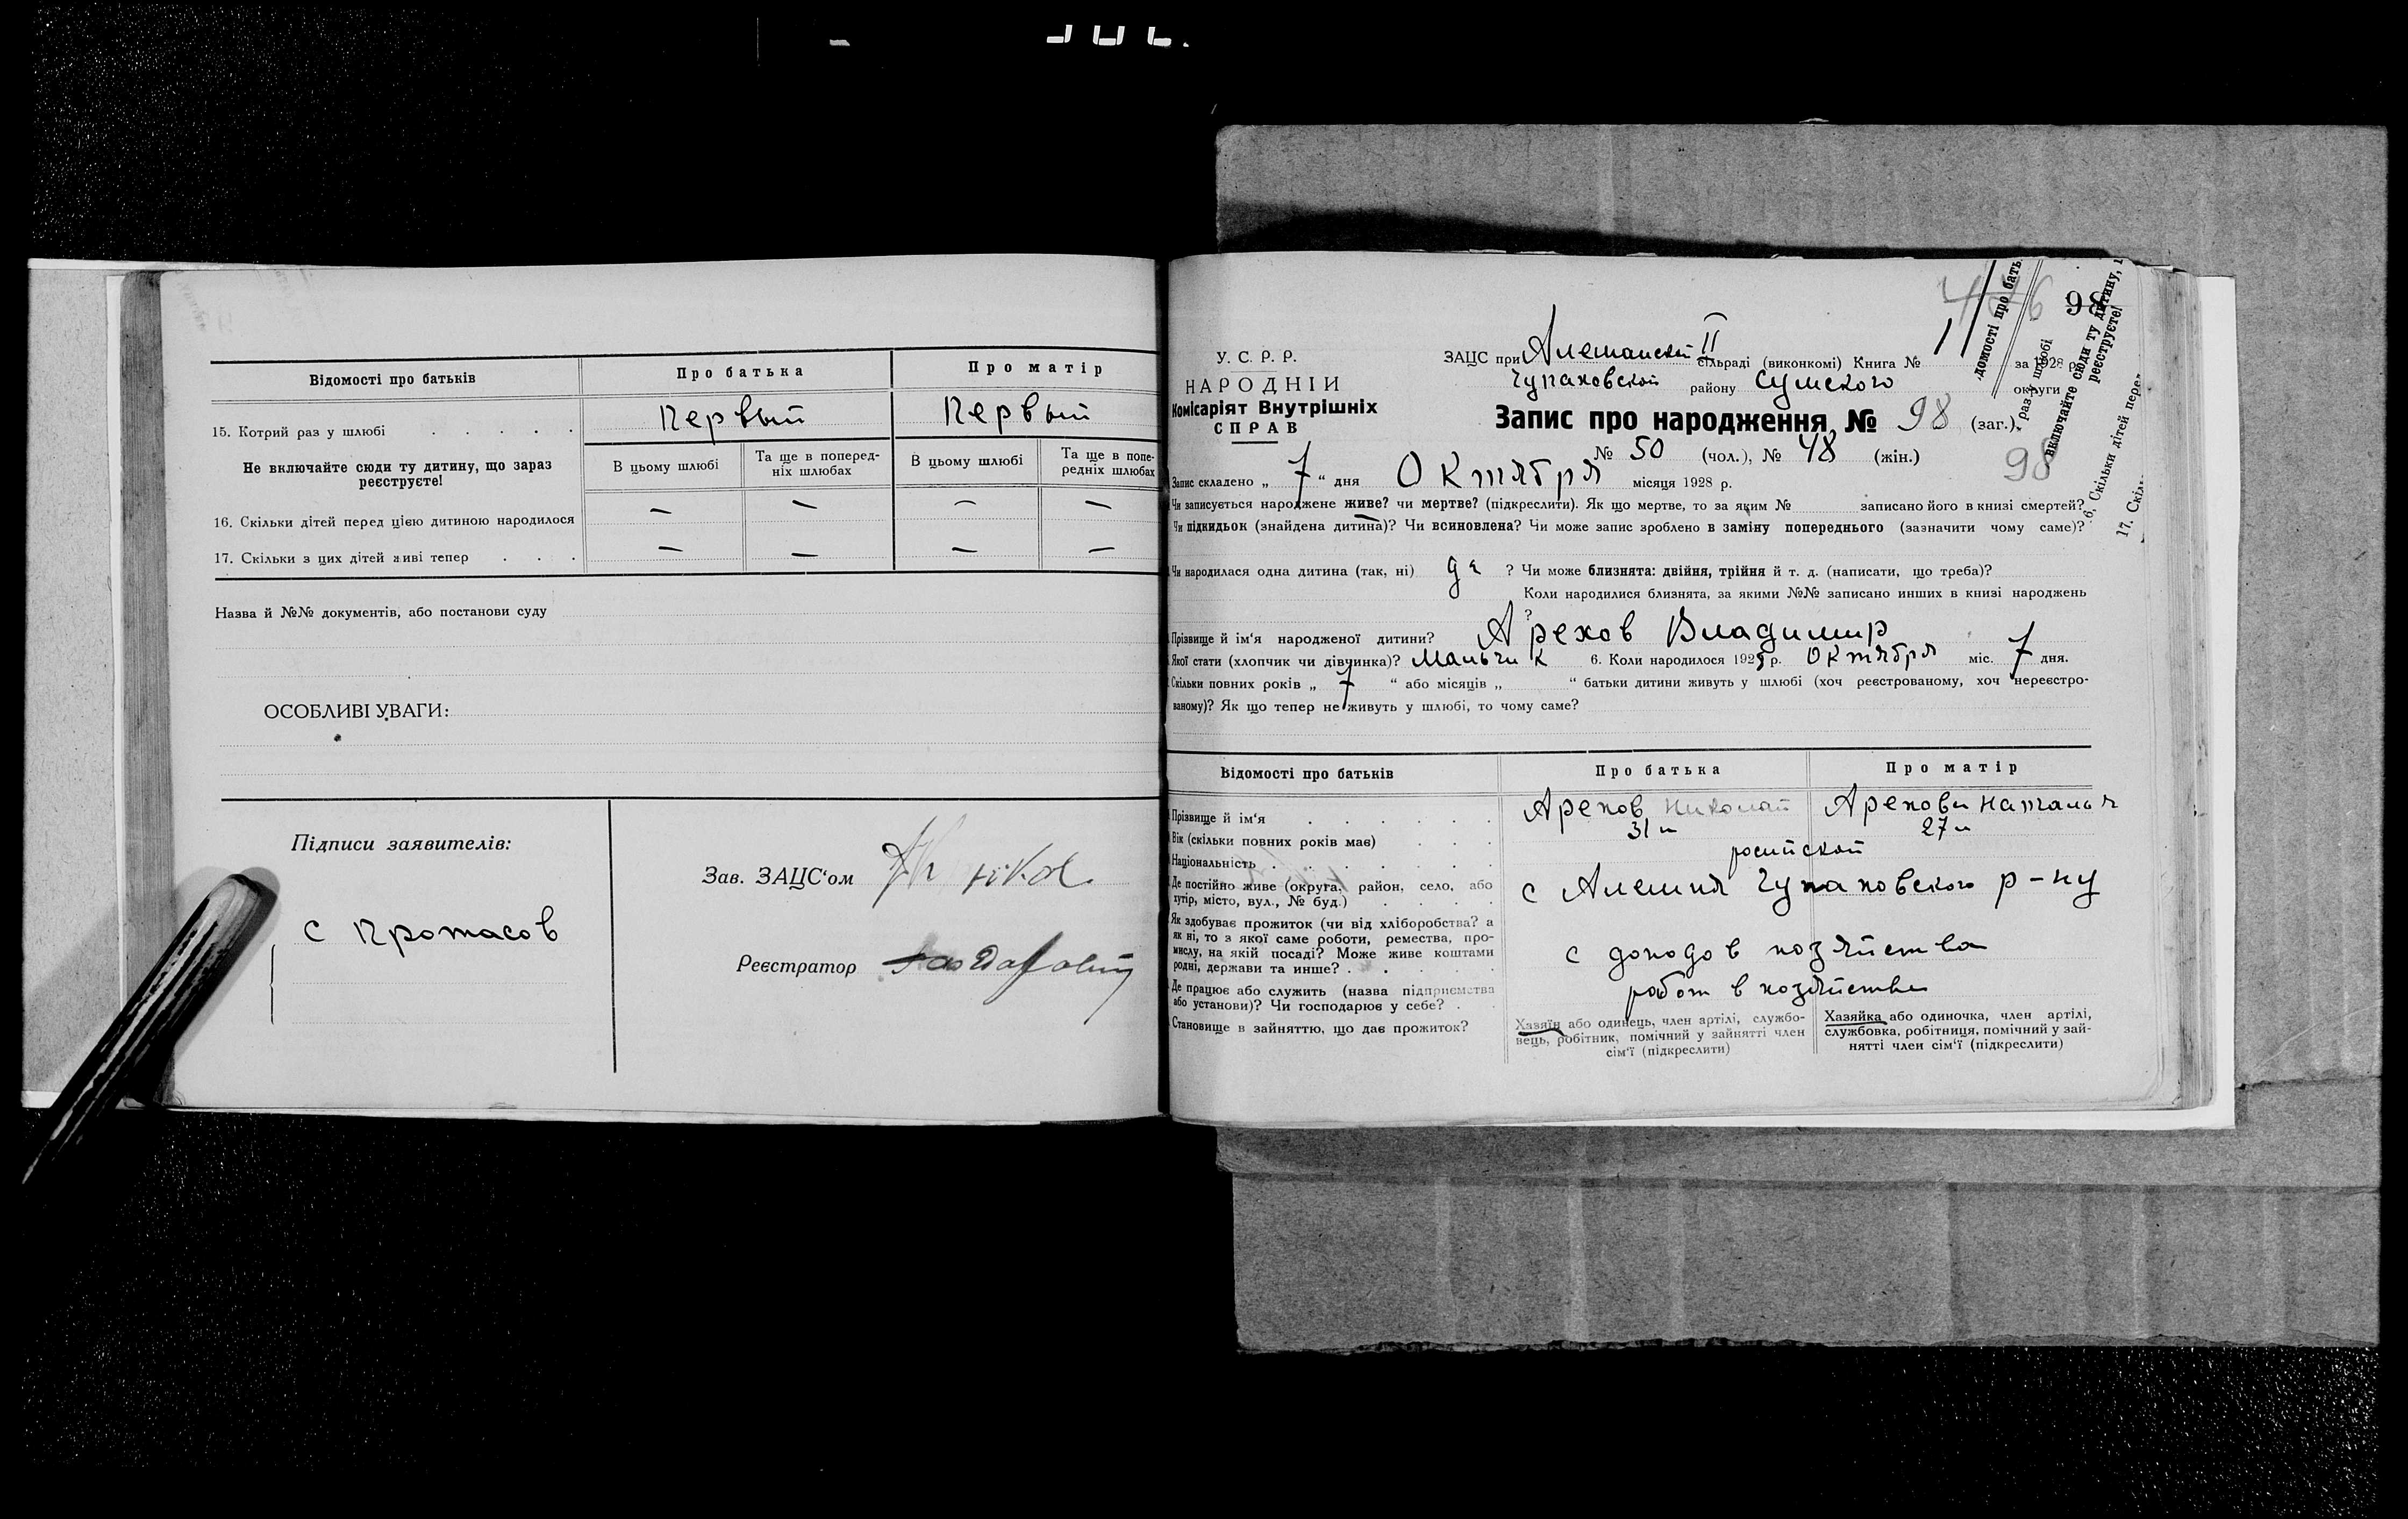 Відомості про батьків
Про батька
Про матір
15. Котрий раз у шлюбі . . . . .
Первый
Первый
Не включайте сюди ту дитину, що зараз реєструєте!
В цьому шлюбі
Та ще в поперед-
ніх шлюбах
В цьому шлюбі
Та ще в попе-
редніх шлюбах
16. Скільки дітей перед цією дитиною народилося
— — — —
17. Скільки з цих дітей живі тепер . . .
— — — —
Назва й №№ документів, або постанови суду
ОСОБЛИВІ УВАГИ:
Підписи заявителів:
с Протасов
Зав. ЗАЦС'ом
Реєстратор
98
У. С. Р. Р.
НАРОДНІЙ
Комісаріят Внутрішніх
СПРАВ
ЗАЦС при Алешанской II сільраді (виконкомі) Книга № 1 за 1928 р.
Чупаховской району Сумского округи
Запис про народження № 98 (заг.).
№ 50 (чол.), № 48 (жін.)
98
Запис складено „ 7 “ дня Октября місяця 1928 р.
Чи записується народжене живе? чи мертве? (підкреслити). Як що мертве, то за яким № записано його в книзі смертей?
Чи підкидьок (знайдена дитина)? Чи всиновлена? Чи може запис зроблено в заміну попереднього (зазначити чому саме)?
Чи народилася одна дитина (так, ні) да ? Чи може близнята: двійня, трійня й т. д. (написати, що треба)?
Коли народилися близнята, за якими №№ записано инших в книзі народжень
?
Прізвище й ім'я народженої дитини? Арехов Владимир
Якої стати (хлопчик чи дівчинка)? Мальчик 6. Коли народилося 1928 р. Октября міс. 7 дня.
Скільки повних років „ 7 “ або місяців „ “ батьки дитини живуть у шлюбі (хоч реєстрованому, хоч нереєстро-
ваному)? Як що тепер не живуть у шлюбі, то чому саме?
Відомості про батьків
Про батька
Про матір
Прізвище й ім'я . . . . . .
Арехов Николай
Арехова Наталья
Вік (скільки повних років має) . . .
31 л
27 л
Національність . . . . . . .
росийской
Де постійно живе (округа, район, село, або
хутір, місто, вул., № буд.) . . . .
с Алешня Чупаховского р-ну
Як здобуває прожиток (чи від хліборобства? а
як ні, то з якої саме роботи, ремества, про-
мислу, на якій посаді? Може живе коштами
родні, держави та инше? . . . . .
с доходов хозяйства
Де працює або служить (назва підприємства
або установи)? Чи господарює у себе? . .
работ в хозяйстве
Становище в зайняттю, що дає прожиток?
Хазяїн або одинець, член артілі, службо-
вець, робітник, помічний у зайнятті член
сім'ї (підкреслити)
Хазяйка або одиночка, член артілі,
службовка, робітниця, помічний у зай-
нятті член сім'ї (підкреслити)
домості про бать
раз у шлюбі
включайте сюди ту дитину,
реєструєте!
6. Скільки дітей перед
17. Скіль